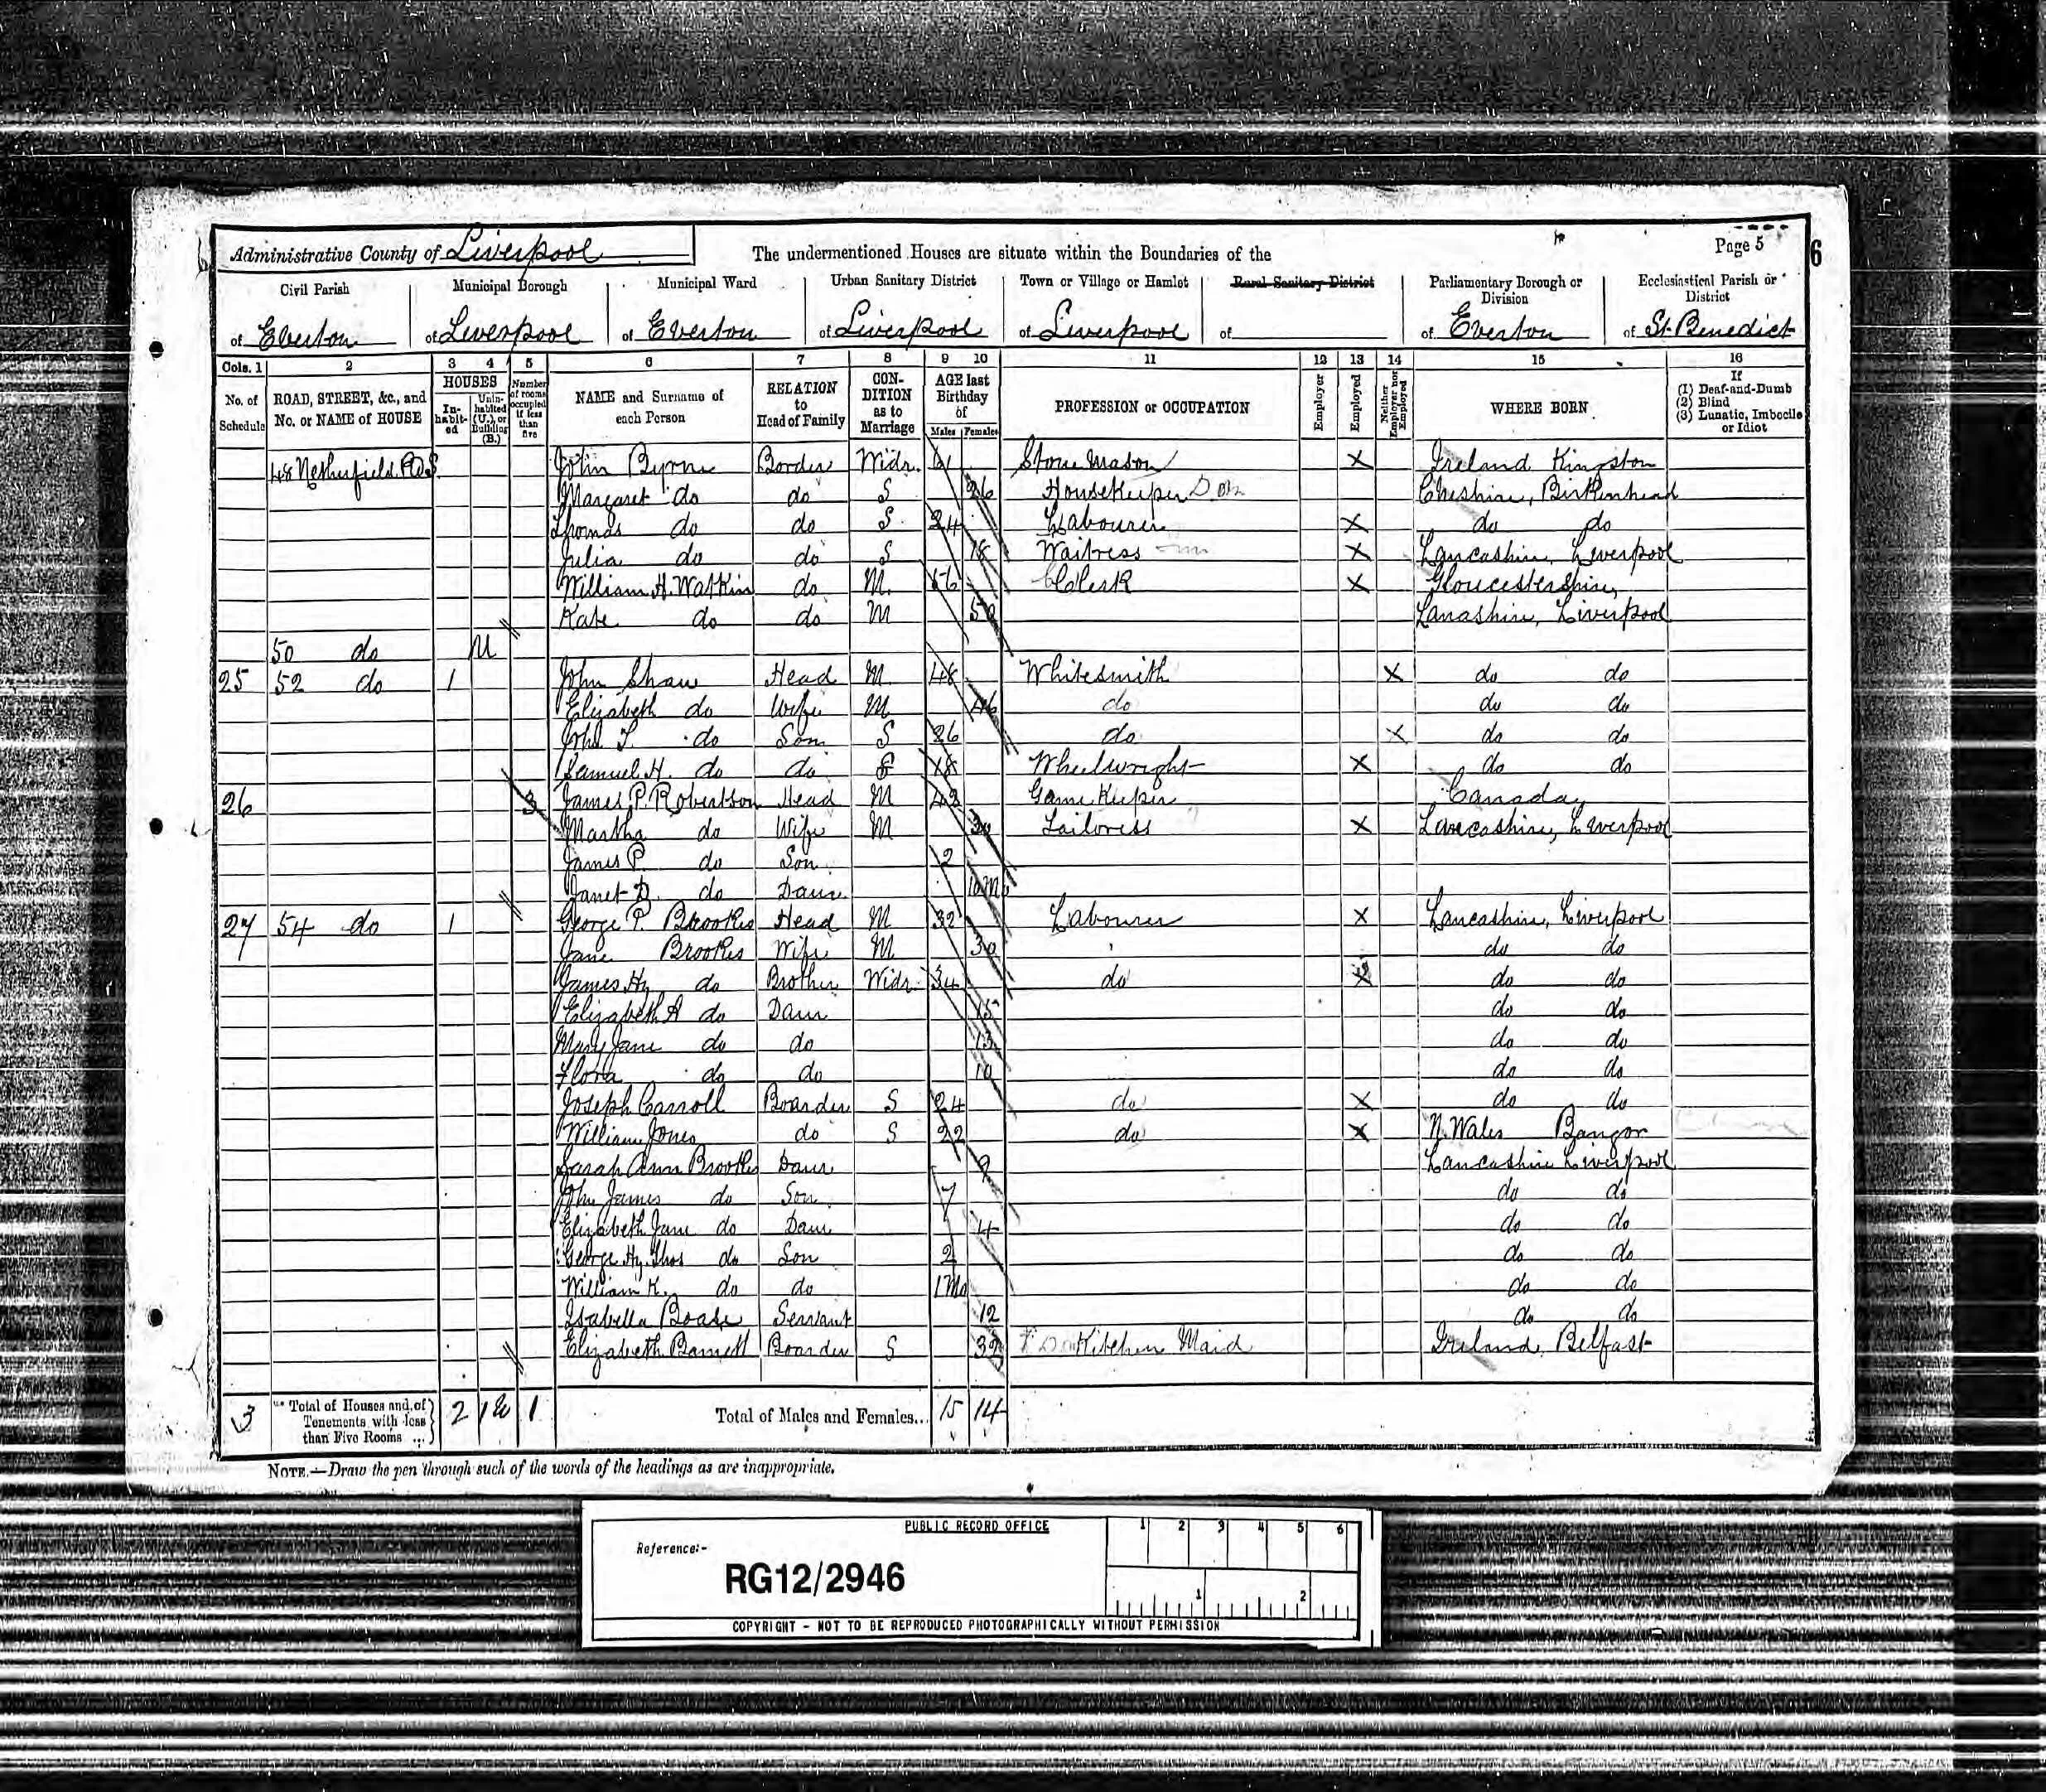 Administrative County of Liverpool The undermentioned Houses are situate within the Boundaries of the Page 5 6
Civil Parish Municipal Borough Municipal Ward Urban Sanitary District Town or Village or Hamlet Rural Sanitary District Parliamentary Borough or Division Ecclesiastical Parish or District
of Everton of Liverpool of Everton of Liverpool of Liverpool of of Everton of St. Benedict
Cols. 1 2 3 4 5 6 7 8 9 10 11 12 13 14 15 16
No. of Schedule ROAD, STREET, &c., and No. or NAME of HOUSE HOUSES In-habit-ed Unin-habited (U.), or Building (B.) Number of rooms occupied if less than five NAME and Surname of each Person RELATION to Head of Family CON-DITION as to Marriage AGE last Birthday of Males Females PROFESSION or OCCUPATION Employer Employed Neither Employer nor Employed WHERE BORN If (1) Deaf-and-Dumb (2) Blind (3) Lunatic, Imbecile or Idiot
48 Netherfield Rd S. John Byrne Border Widr. 61 Stone Mason X Ireland Kingston
Margaret do do S 26 Housekeeper Dom Cheshire, Birkenhead
Thomas do do S 24 Labourer X do do
Julia do do S 18 Waitress X Lancashire, Liverpool
William H. Watkin do M. 56 Clerk X Gloucestershire,
Kate do do M 50 Lanashire, Liverpool
50 do U
25 52 do 1 John Shaw Head M 48 Whitesmith X do do
Elizabeth do Wife M 46 do do do
John T. do Son S 26 do X do do
Samuel H. do do S 18 Wheelwright X do do
26 3 James P. Robertson Head M 42 Game Keeper Canada
Martha do Wife M 30 Tailoress X Lancashire, Liverpool
James P. do Son 2
Janet D. do Daur. 10 Mo
27 54 do 1 George P. Brookes Head M 32 Labourer X Lancashire, Liverpool
Jane Brookes Wife M 30 do do
James Hy do Brother Widr 34 do X do do
Elizabeth A do Daur 15 do do
Mary Jane do do 13 do do
Flora do do 10 do do
Joseph Carroll Boarder S 24 do X do do
William Jones do S 22 do X N. Wales Bangor
Sarah Ann Brookes Daur 9 Lancashire Liverpool
John James do Son 7 do do
Elizabeth Jane do Daur 4 do do
George Hy. Thos do Son 2 do do
William K. do do 1 Mo do do
Isabella Boase Servant 12 do do
Elizabeth Barnett Boarder S 32 Dom Kitchen Maid Ireland, Belfast
3 Total of Houses and of Tenements with less than Five Rooms ... 2 1 U 1 Total of Males and Females... 15 14
NOTE.—Draw the pen through such of the words of the headings as are inappropriate.
PUBLIC RECORD OFFICE 1 2 3 4 5 6
Reference:-
RG12/2946 1 2
COPYRIGHT - NOT TO BE REPRODUCED PHOTOGRAPHICALLY WITHOUT PERMISSION